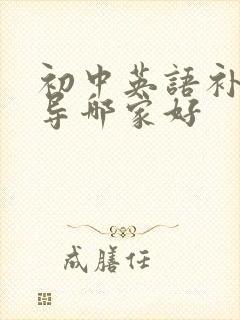 初中英語补
导哪家好
成膳任